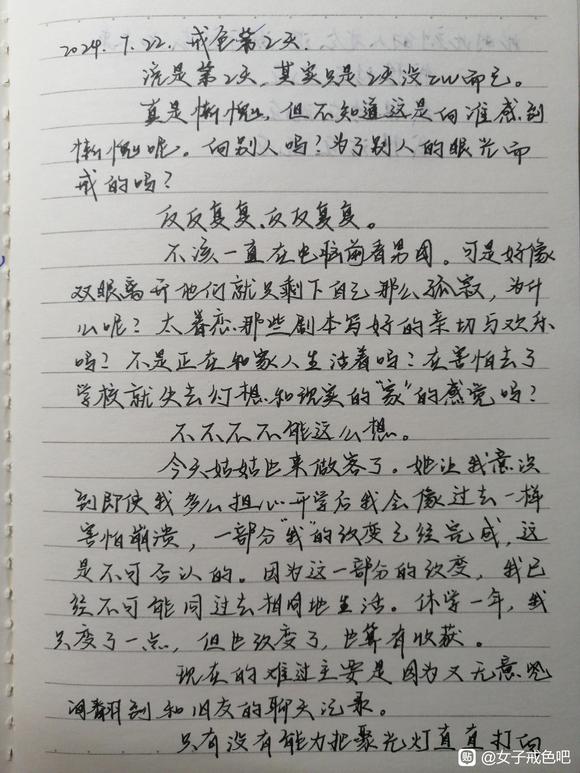 2024.7.22. 戒色第2天.
说是第2天,其实只是2天没zw而已。
真是惭愧,但不知道这是向谁感到
惭愧呢。向别人吗?为了别人的眼光而
戒的吗?
反反复复、反反复复。
不该一直在电脑前看男团。可是好像
双眼离开他们就只剩下自己那么孤寂,为什
么呢?太眷恋那些剧本写好的亲切与欢乐
吗?不是正在和家人生活着吗?在害怕去了
学校就失去幻想和现实的“家”的感觉吗?
不不不不能这么想。
今天姑姑也来做客了。她让我意识
到即使我多么担心开学后我会像过去一样
害怕崩溃,一部分“我”的改变已经完成,这
是不可否认的。因为这一部分的改变,我已
经不可能同过去相同地生活。休学一年,我
只变了一点,但也改变了,也算有收获。
现在的难过主要是因为又无意
间翻到和旧友的聊天记录。
只有没有能力把聚光灯直直打向
贴 @女子戒色吧